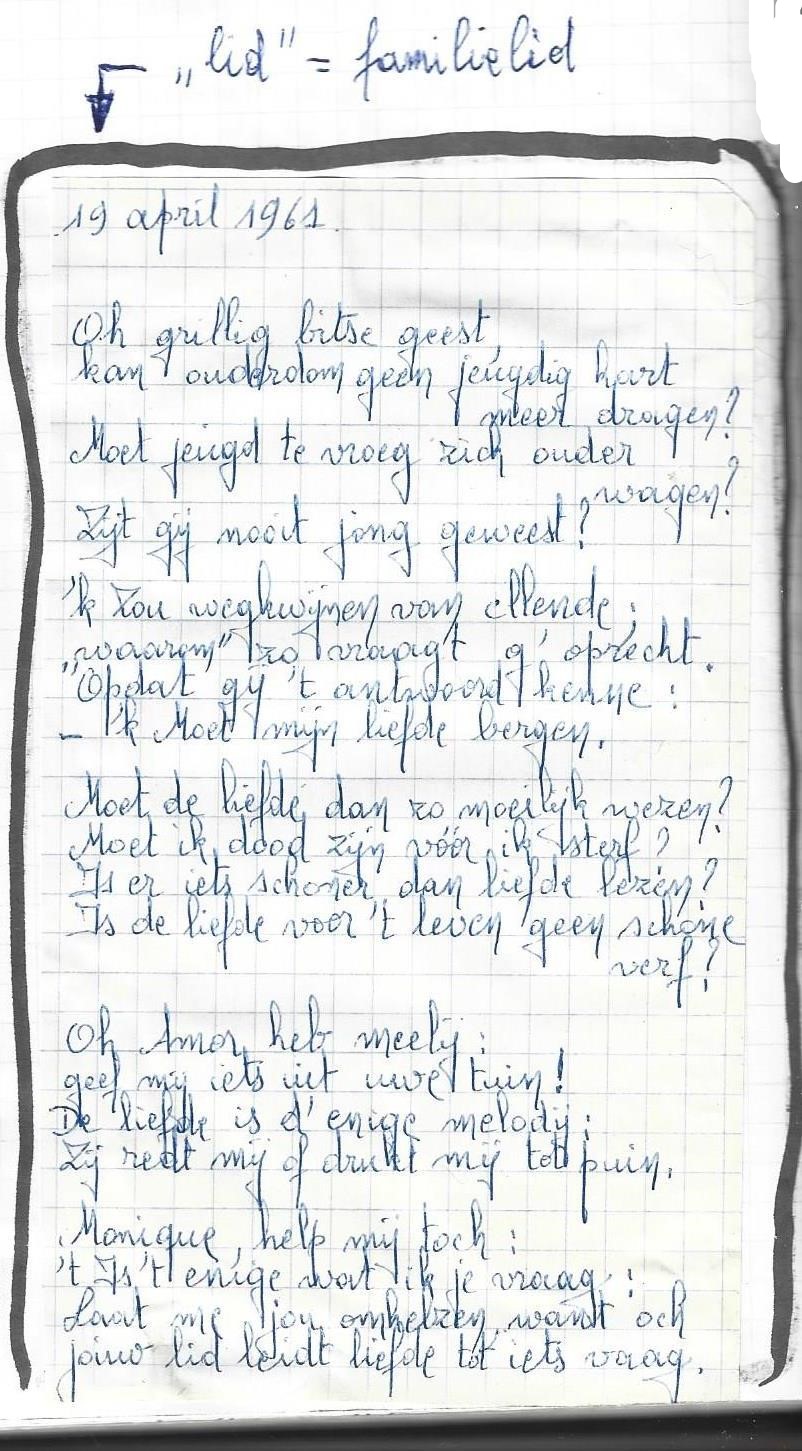 „lid" = familielid
19 april 1961.
Oh grillig bitse geest,
kan ouderdom geen jeugdig hart
meer dragen?
Moet jeugd te vroeg zich ouder
wagen?
Zijt gij nooit jong geweest?
'k Zou wegkwijnen van ellende;
„waarom" zo vraagt g' oprecht.
"Opdat gij 't antwoord kenne:
– 'k Moet mijn liefde bergen.
Moet de liefde dan zo moeilijk wezen?
Moet ik dood zijn vóór ik sterf?
Is er iets schoner dan liefde lezen?
Is de liefde voor 't leven geen schone
verf?
Oh Amor, heb meelij:
geef mij iets uit uwe tuin!
De liefde is d' enige melodij;
Zij redt mij of drukt mij tot puin.
Monique, help mij toch:
't Is 't enige wat ik je vraag:
Laat me jou omhelzen, want och
jouw lid leidt liefde tot iets vaag.